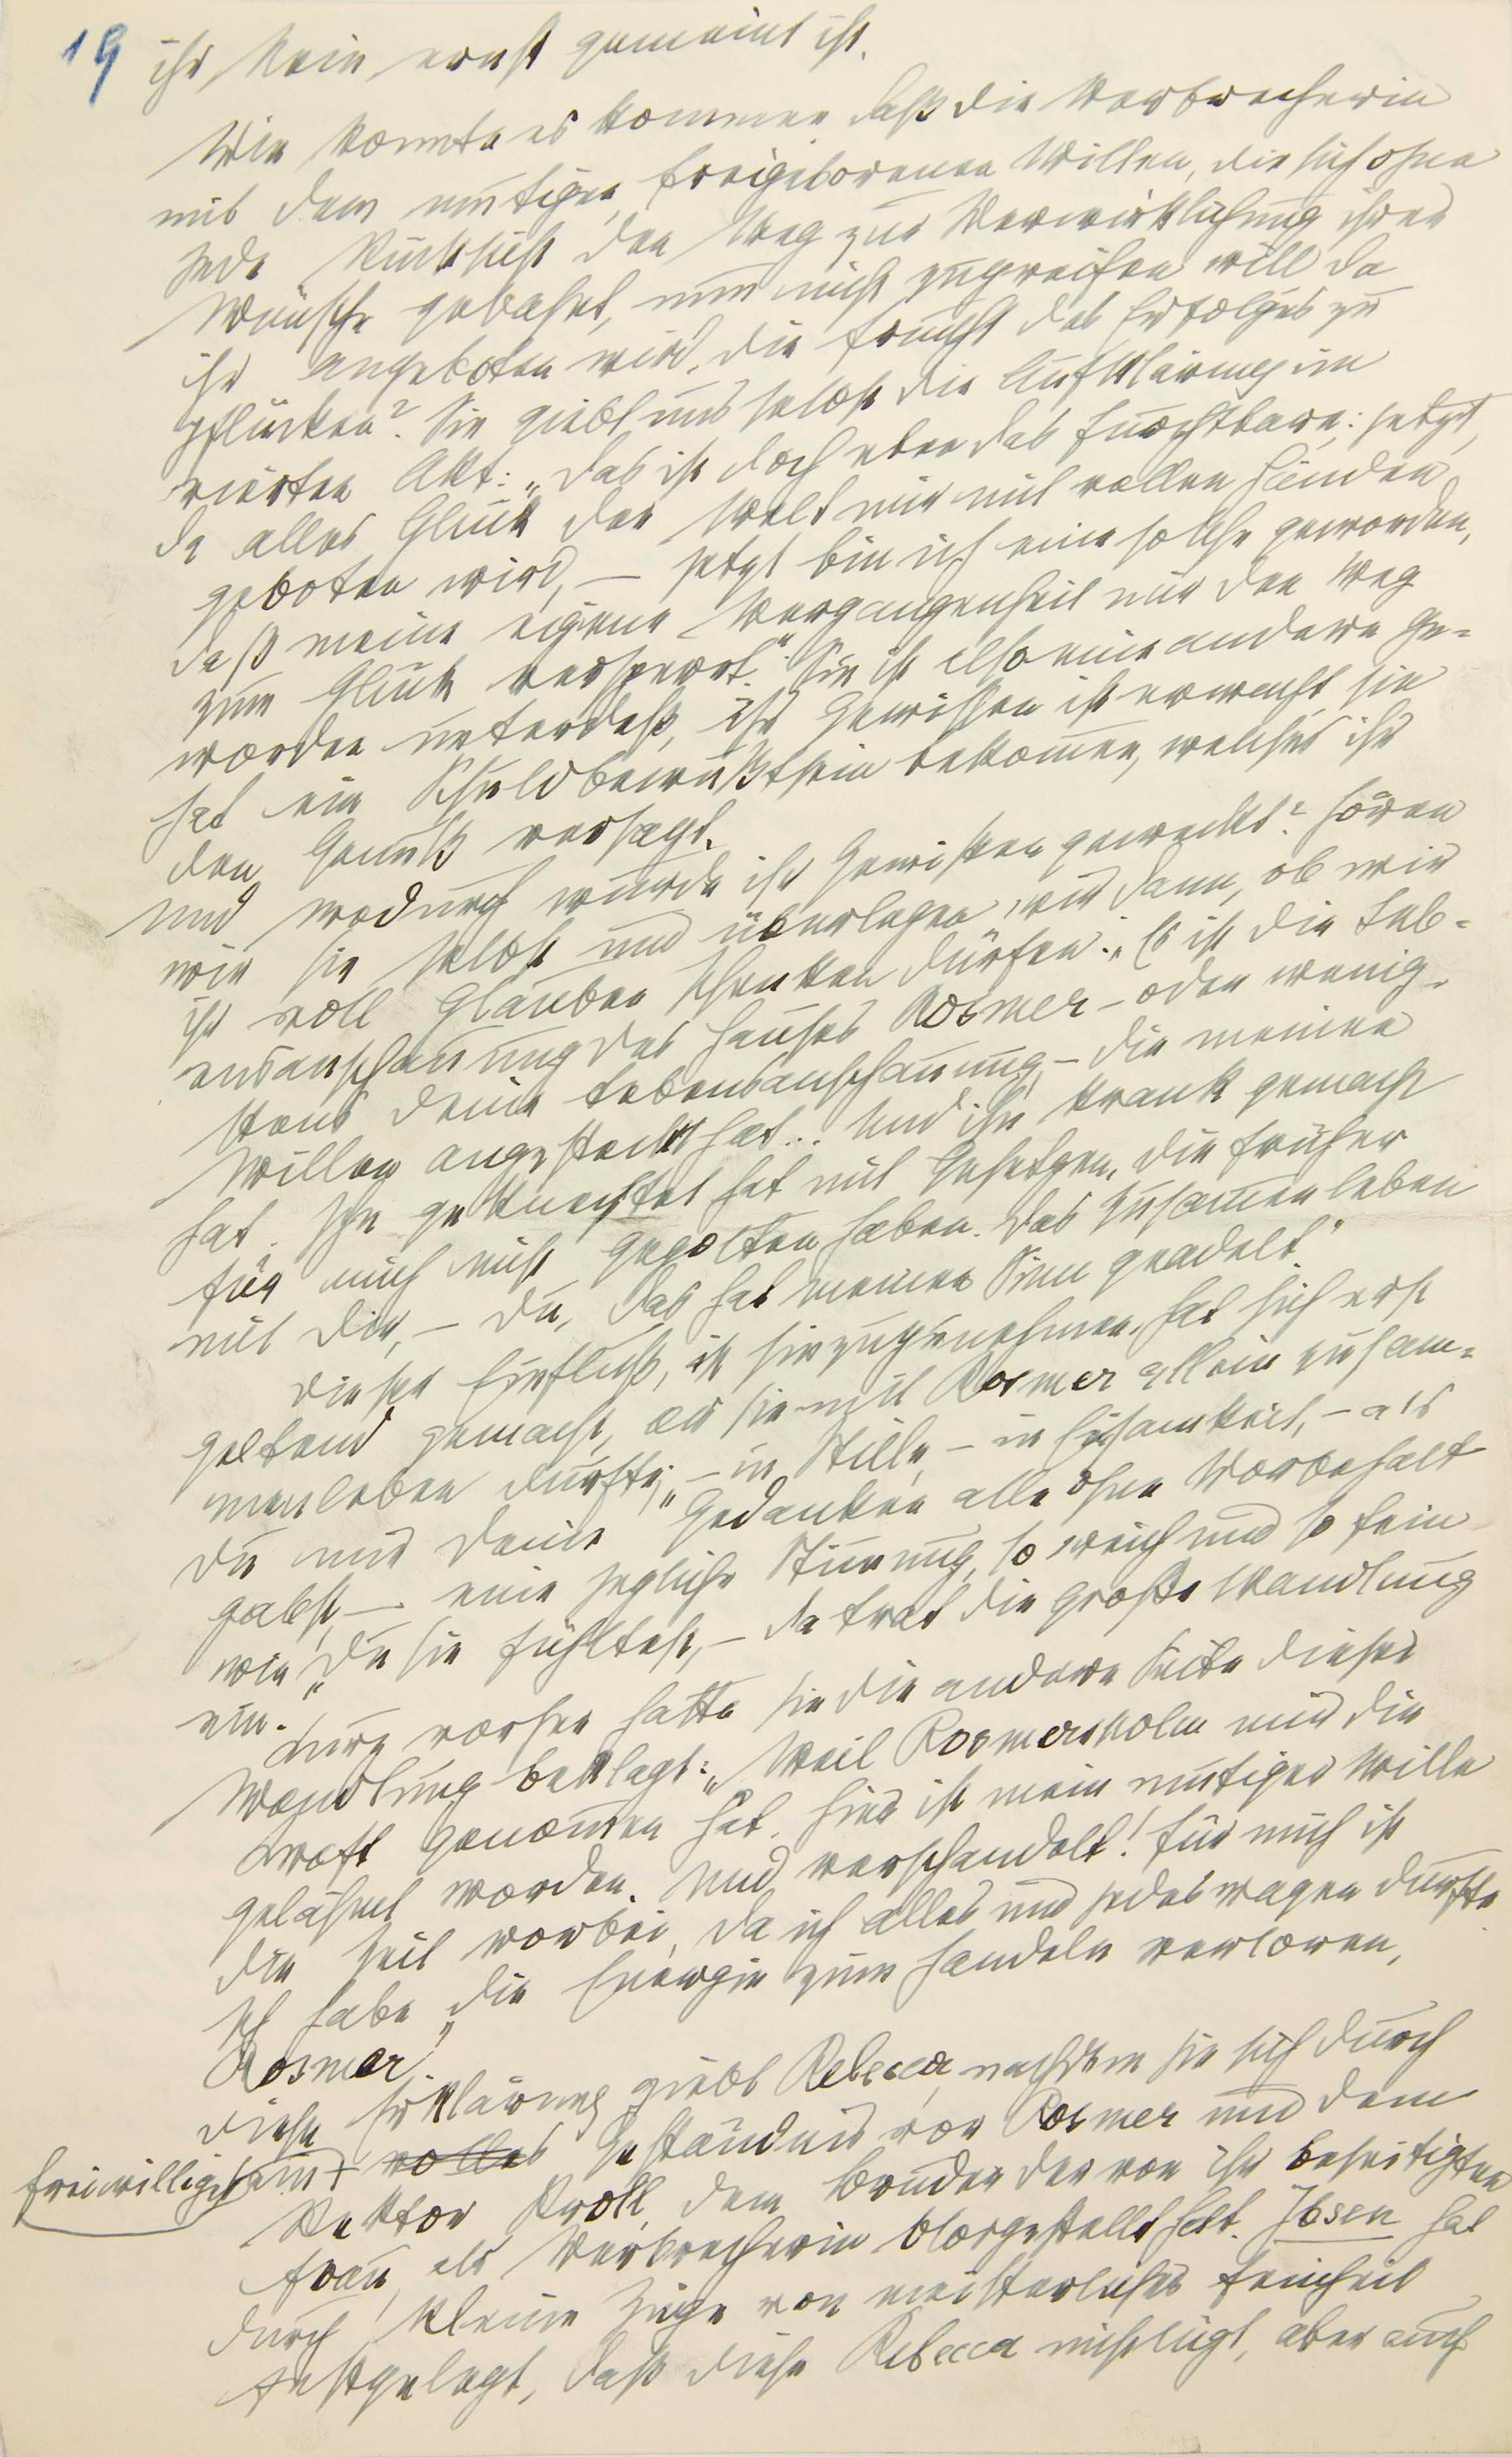 19
ihr Nein ernst gemeint ist.
Wie konnte es kommen daß die Verbrecherin
mit dem mutigen, freigeborenen Willen, die sich ohne
jede Rücksicht den Weg zur Verwirklichung ihrer
Wünsche gebahnt, nun nicht zugreifen will da
ihr angeboten wird, die Frucht des Erfolges zu
pflücken? Sie giebt uns selbst die Aufklärung im
vierten Akt: „Das ist doch eben das Furchtbare: jetzt,
da alles Glück der Welt mir mit vollen Händen
geboten wird, – jetzt bin ich eine solche geworden,
daß meine eigene Vergangenheit mir den Weg
zum Glück versperrt". Sie ist also eine andere ge-
worden unterdeß, ihr Gewissen ist erwacht, sie
hat ein Schuldbewußtsein bekommen, welches ihr
den Genuß versagt.
Und wodurch wurde ihr Gewissen geweckt? Hören
wir sie selbst und überlegen wir dann, ob wir
ihr voll Glauben schenken dürfen: „Es ist die Leb-
ensanschauung des Hauses Rosmer – oder wenig-
stens deine Lebensanschauung, – die meinen
Willen angesteckt hat .. Und ihn krank gemacht
hat. Ihn geknechtet hat mit Gesetzen, die früher
für mich nicht gegolten haben. Das Zusammenleben
mit dir, – du, das hat meinen Sinn geadelt."
Dieser Einfluß, ist hinzuzunehmen, hat sich erst
geltend gemacht, als sie mit Rosmer allein zusam-
menleben durfte: „– in Stille, – in Einsamkeit, – als
du mir deine Gedanken alle ohne Vorbehalt
gabst, – eine jegliche Stimmung, so weich und so fein
wie du sie fühltest, – da trat die große Wandlung
ein."
Kurz vorher hatte sie die andere Seite dieser
Wandlung beklagt: „Weil Rosmersholm mir die
Kraft genommen hat, hier ist mein mutiger Wille
gelähmt worden. Und verschandelt! Für mich ist
die Zeit vorbei, da ich alles und jedes wagen durfte
Ich habe die Energie zum Handeln verloren,
Rosmer."
Diese Erklärung giebt Rebecca, nachdem sie sich durch
freiwilliges ein volles Geständnis vor Rosmer und dem
Rektor Kroll, dem Bruder der von ihr beseitigten
Frau, als Verbrecherin bloßgestellt hat. Ibsen hat
durch kleine Züge von meisterlicher Feinheit
festgelegt, daß diese Rebecca nicht lügt, aber auch